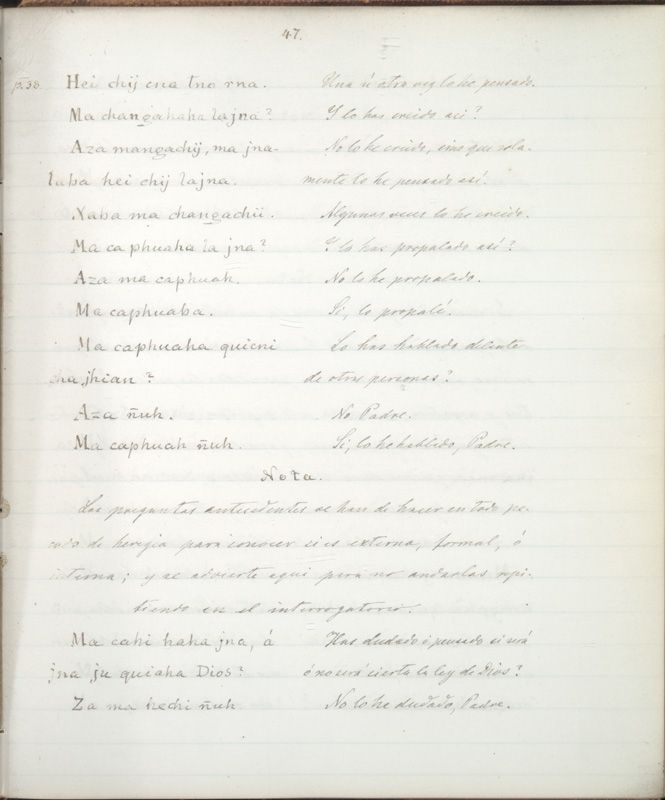 47.
p.38. Hei chij cna tno rna. Una ú otra vez lo he pensado.
Ma changahaha lajna? Y lo has creido asi?
Aza mangachij, ma jna- No lo he creido, sino que sola-
laba hei chij lajna. mente lo he pensado así.
Naba ma changachii. Algunas veces lo he creido.
Ma caphuaha la jna? Y lo has propalado así?
Aza ma caphuah. No lo he propalado.
Ma caphuaba. Si, lo propalé.
Ma caphuaha quicni Lo has hablado delante
cha jhian? de otras personas?
Aza ñuh. No Padre.
Ma caphuah ñuh. Si, lo he hablado, Padre.
Nota.
Las preguntas antecedentes se han de hacer en todo pe-
cado de heregia para conocer si es externa, formal, ó
interna; y se advierte aqui para no andarlas repi-
tiendo en el interrogatorio.
Ma cahi haha jna, á Has dudado ó pensado si será
jna ju quiaha Dios? ó no será cierta la ley de Dios?
Za ma hechi ñuh No lo he dudado, Padre.